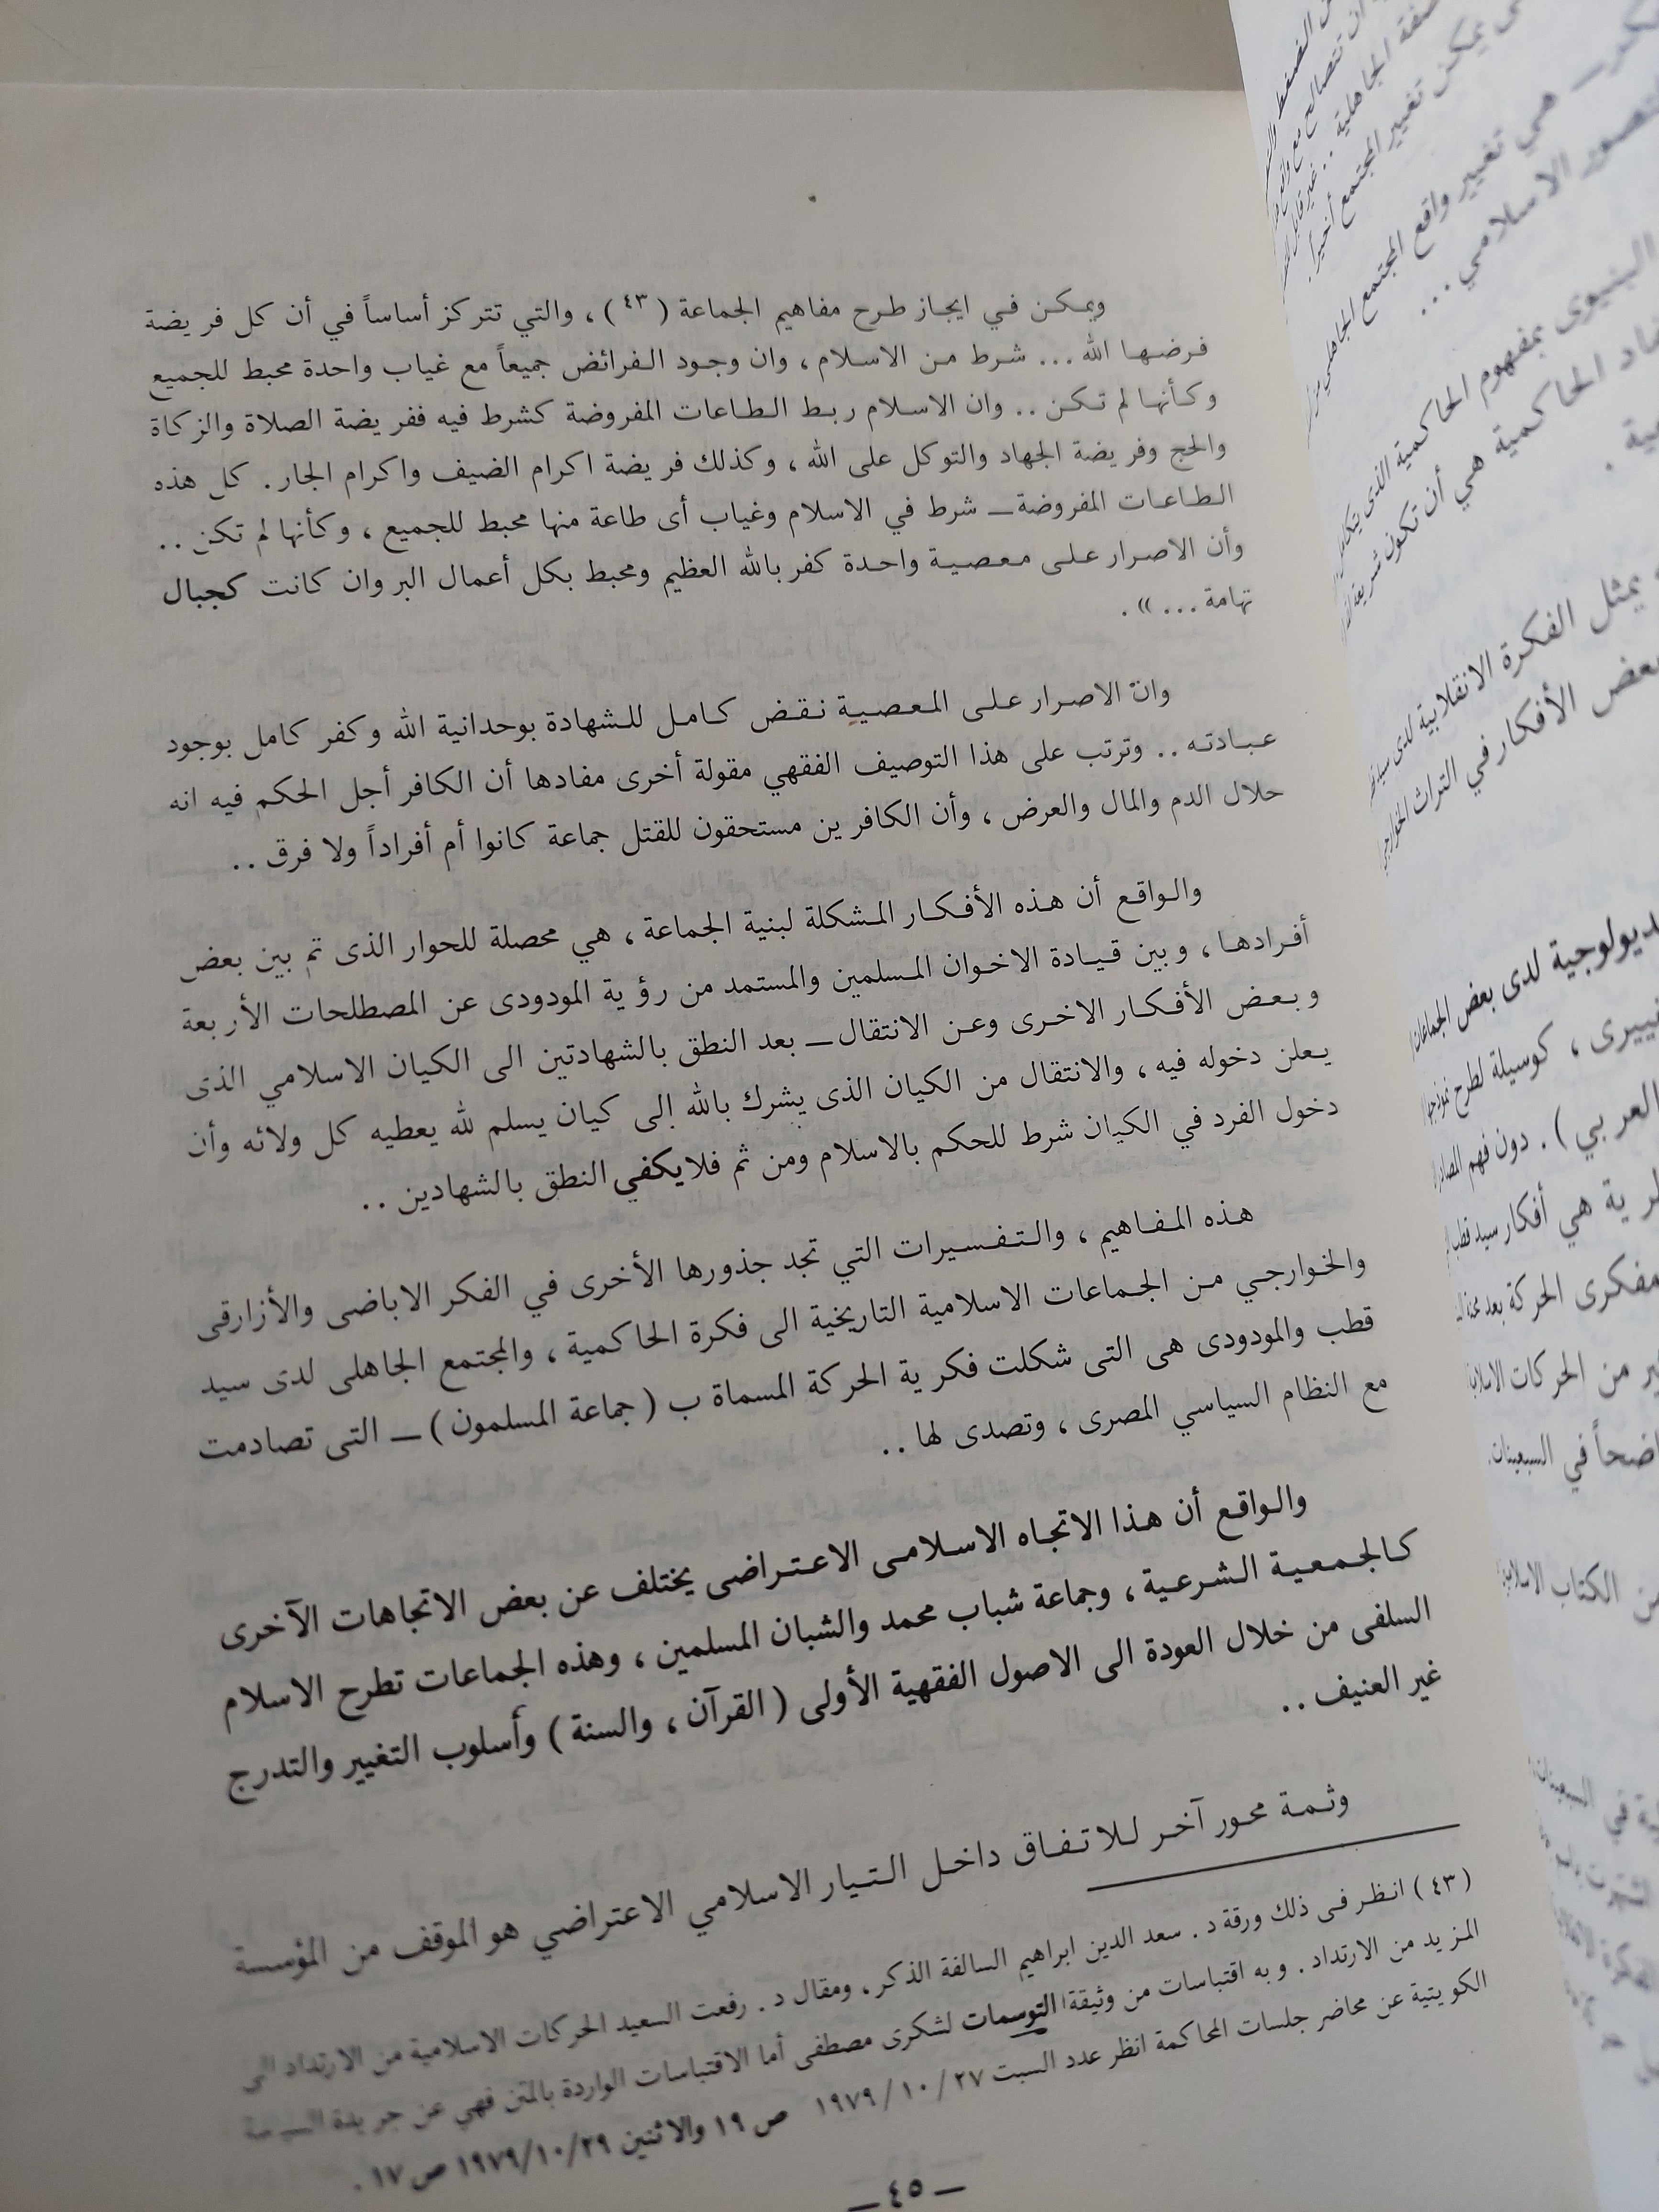 ويمكن في ايجاز طرح مفاهيم الجماعة ( ٤٣ ) ، والتي تتركز أساساً في أن كل فريضة
فرضها الله ... شرط من الاسلام ، وان وجود الفرائض جميعاً مع غياب واحدة محبط للجميع
وكأنها لم تكن .. وان الاسلام ربط الطاعات المفروضة كشرط فيه ففريضة الصلاة والزكاة
والحج وفريضة الجهاد والتوكل على الله ، وكذلك فريضة اكرام الضيف واكرام الجار . كل هذه
الطاعات المفروضة ــ شرط في الاسلام وغياب أى طاعة منها محبط للجميع ، وكأنها لم تكن ..
وأن الاصرار على معصية واحدة كفر بالله العظيم ومحبط بكل أعمال البر وان كانت كجبال
تهامة ... » .
وان الاصرار على المعصية نقض كامل للشهادة بوحدانية الله وكفر كامل بوجود
عبادته .. وترتب على هذا التوصيف الفقهي مقولة أخرى مفادها أن الكافر أجل الحكم فيه انه
حلال الدم والمال والعرض ، وأن الكافرين مستحقون للقتل جماعة كانوا أم أفراداً ولا فرق ..
والواقع أن هذه الأفكار المشكلة لبنية الجماعة ، هي محصلة للحوار الذى تم بين بعض
أفرادها ، وبين قيادة الاخوان المسلمين والمستمد من رؤية المودودى عن المصطلحات الأربعة
وبعض الأفكار الاخرى وعن الانتقال ــ بعد النطق بالشهادتين الى الكيان الاسلامي الذى
يعلن دخوله فيه ، والانتقال من الكيان الذى يشرك بالله إلى كيان يسلم لله يعطيه كل ولائه وأن
دخول الفرد في الكيان شرط للحكم بالاسلام ومن ثم فلا يكفي النطق بالشهادين ..
هذه المفاهيم ، والتفسيرات التي تجد جذورها الأخرى في الفكر الاباضى والأزارقى
والخوارجي من الجماعات الاسلامية التاريخية الى فكرة الحاكمية ، والمجتمع الجاهلى لدى سيد
قطب والمودودى هى التى شكلت فكرية الحركة المسماة ب ( جماعة المسلمون ) ــ التى تصادمت
مع النظام السياسي المصرى ، وتصدى لها ..
والواقع أن هذا الاتجاه الاسلامى الاعتراضى يختلف عن بعض الاتجاهات الآخرى
كالجمعية الشرعية ، وجماعة شباب محمد والشبان المسلمين ، وهذه الجماعات تطرح الاسلام
السلفى من خلال العودة الى الاصول الفقهية الأولى ( القرآن ، والسنة ) وأسلوب التغيير والتدرج
غير العنيف ..
وثمة محور آخر للاتفاق داخل التيار الاسلامي الاعتراضي هو الموقف من المؤسسة
( ٤٣ ) انظر فى ذلك ورقة د . سعد الدين ابراهيم السالفة الذكر ، ومقال د . رفعت السعيد الحركات الاسلامية من الارتداد الى
المزيد من الارتداد . وبه اقتباسات من وثيقة التوسمات لشكرى مصطفى أما الاقتباسات الواردة بالمتن فهي عن جريدة السياسة
الكويتية عن محاضر جلسات المحاكمة انظر عدد السبت ٢٧ / ١٠ / ١٩٧٩ ص ١٩ والاثنين ١٩٧٩/١٠/٢٩ ص ١٧ .
ــ ٤٥ ــ
هي تغيير واقع المجتمع الجاهلي
التصور الاسلامي ...
البنيوى بمفهوم الحاكمية الذى
الحاكمية هي أن تكون شريعة
يمثل الفكرة الانقلابية لدى سيد
بعض الأفكار في التراث
لدى بعض الجماعات
كوسيلة لطرح
العربي ) . دون فهم
هي أفكار سيد قطب
مفكرى الحركة بعد
من الحركات
في السبعينات
الكتاب